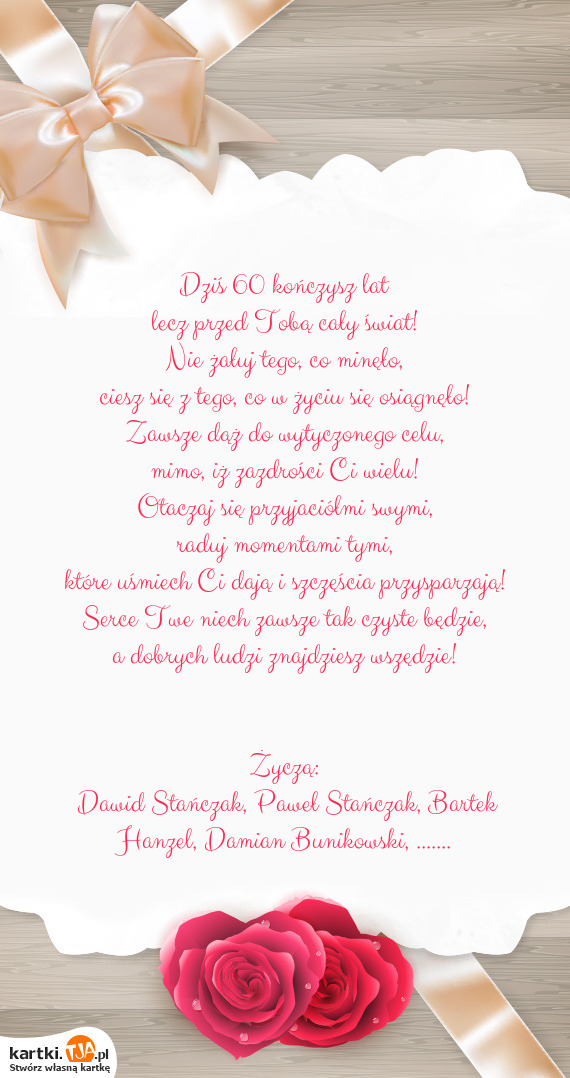 Dziś 60 kończysz lat
lecz przed Tobą cały świat!
Nie żałuj tego, co minęło,
ciesz się z tego, co w życiu się osiągnęło!
Zawsze dąż do wytyczonego celu,
mimo, iż zazdrości Ci wielu!
Otaczaj się przyjaciółmi swymi,
raduj momentami tymi,
które uśmiech Ci dają i szczęścia przysparzają!
Serce Twe niech zawsze tak czyste będzie,
a dobrych ludzi znajdziesz wszędzie!
Życzą:
Dawid Stańczak, Paweł Stańczak, Bartek
Hanzel, Damian Bunikowski, .......
kartki.TJA.pl
Stwórz własną kartkę